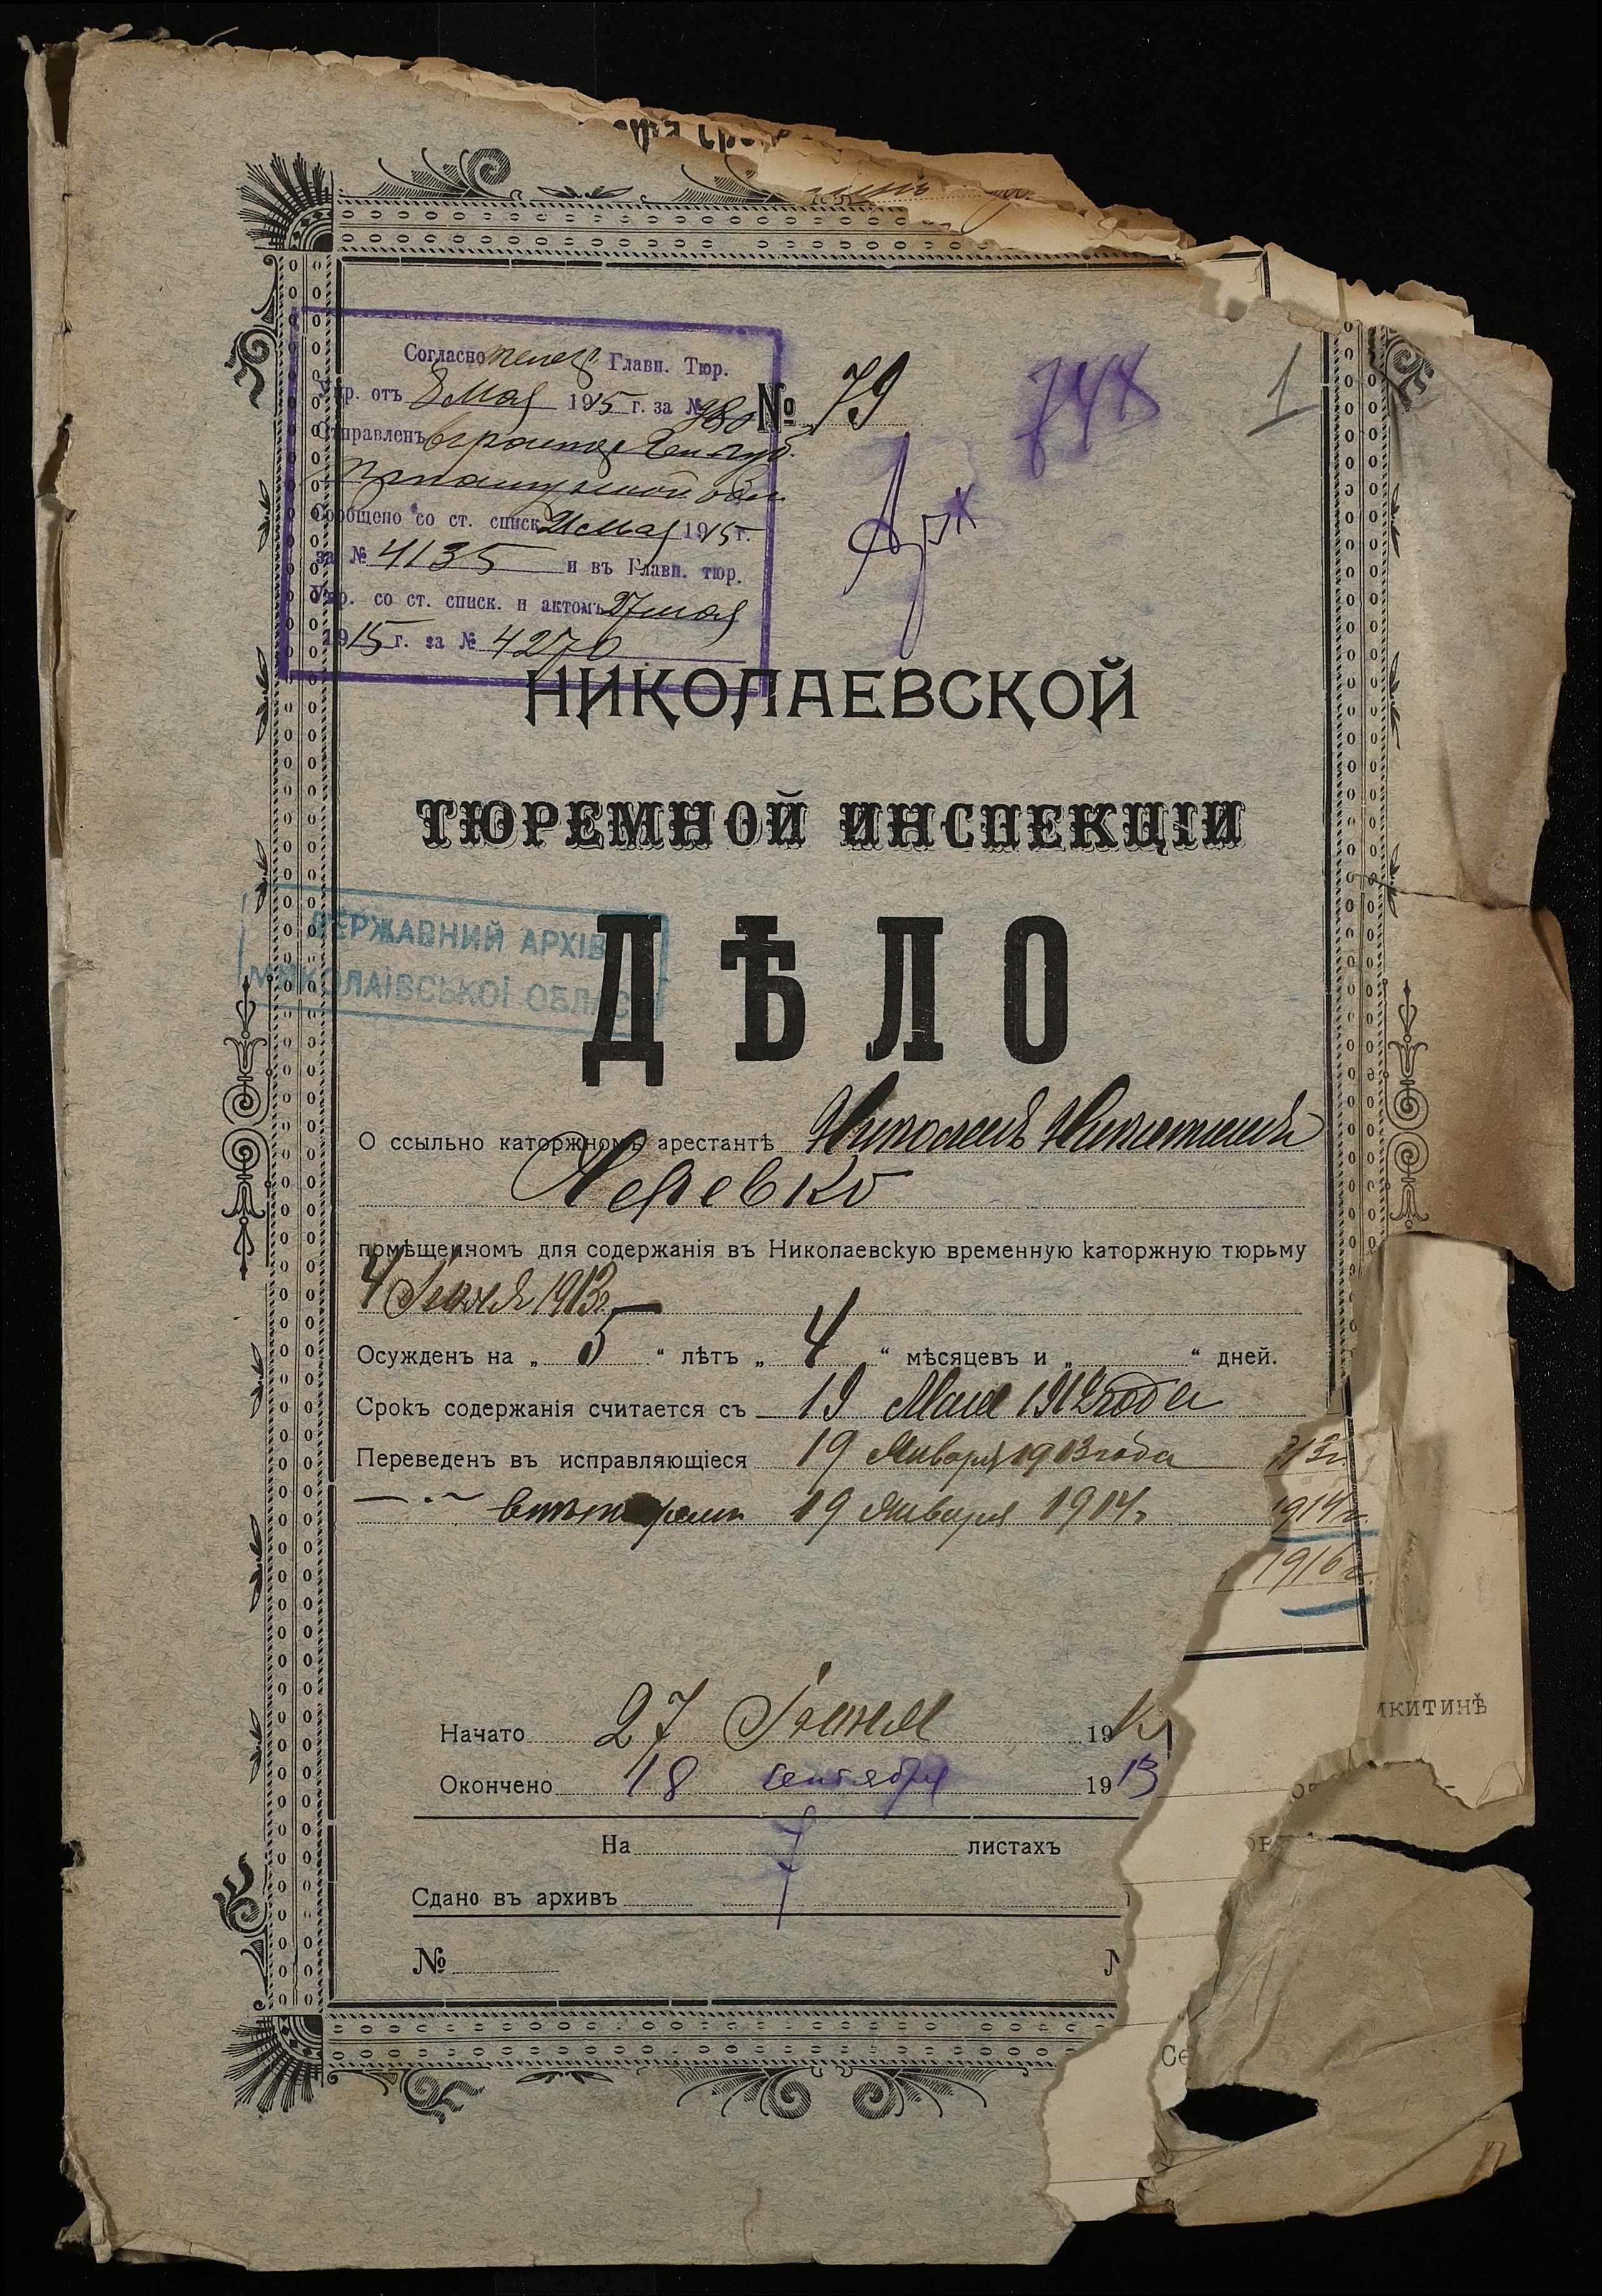 Согласно телег. Главн. Тюр.
Упр. отъ 8 Мая 1915 г. за № 980
Отправленъ
Сообщено со ст. списк. 21 мая 1915 г.
за № 4135 и въ Главн. тюр.
Упр. со ст. списк. и актомъ 27 мая
1915 г. за № 4270
№ 79
748
1
Арх
НИКОЛАЕВСКОЙ
ТЮРЕМНОЙ ИНСПЕКЦІИ
ДЕРЖАВНИЙ АРХІВ
МИКОЛАЇВСЬКОЇ ОБЛАСТІ
ДѢЛО
О ссыльно каторжномъ арестантѣ Николаѣ Никитинѣ
Черевко
помѣщенномъ для содержанія въ Николаевскую временную каторжную тюрьму
4 Іюля 1913г.
Осужденъ на „ 5 “ лѣтъ „ 4 “ мѣсяцевъ и „ “ дней.
Срокъ содержанія считается съ 19 Мая 1912 года
Переведенъ въ исправляющіеся 19 Января 1913 года
19 Января 1914г.
1914г.
1916г.
Начато 27 Іюня 191
Окончено 18 сентября 1915
На 7 листахъ
Сдано въ архивъ
№
икитинѣ
Се